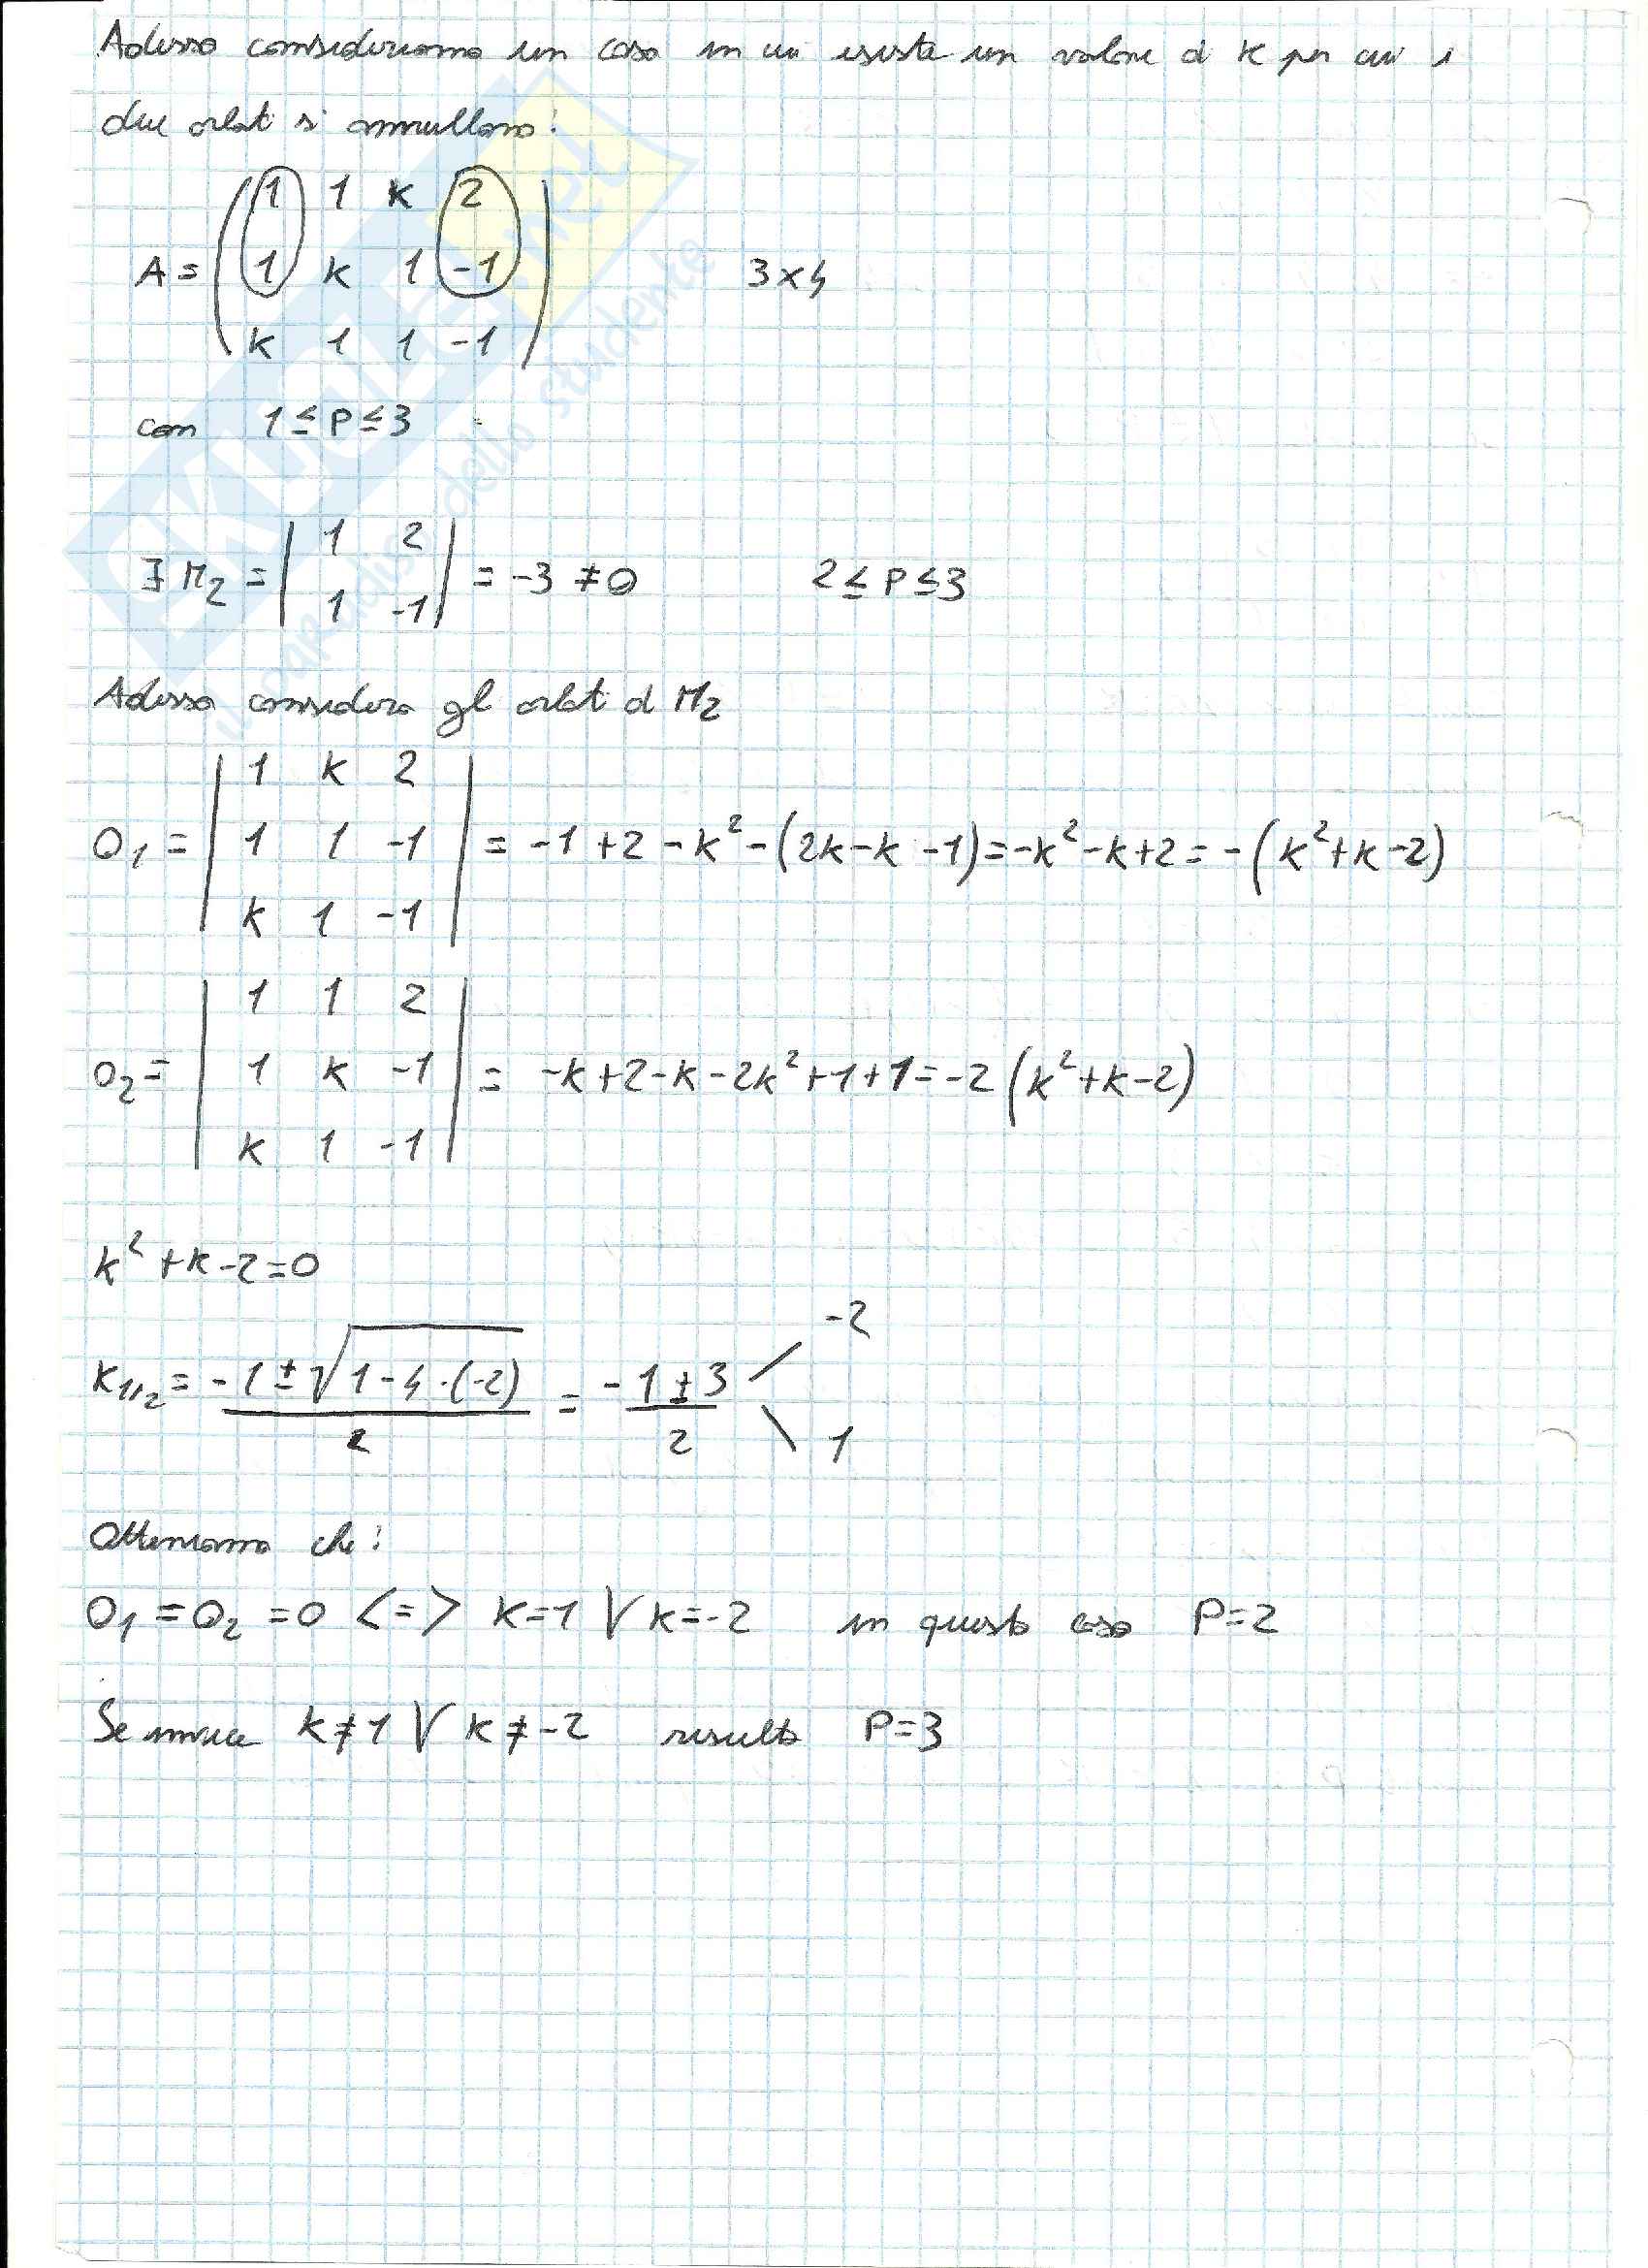 Adesso consideriamo un caso in cui esiste un valore di k per cui i
due orlati si annullano:
A = ( 1 1 k 2
1 k 1 -1
k 1 1 -1 ) 3×4
con 1 ≤ P ≤ 3
∃ M₂ = | 1 2
1 -1 | = -3 ≠ 0 2 ≤ P ≤ 3
Adesso considero gli orlati di M₂
O₁ = | 1 k 2
1 1 -1
k 1 -1 | = -1+2-k²-(2k-k-1)=-k²-k+2=-(k²+k-2)
O₂ = | 1 1 2
1 k -1
k 1 -1 | = -k+2-k-2k²+1+1=-2(k²+k-2)
k²+k-2=0
k₁,₂ = (-1±√(1-4·(-2)))/2 = (-1±3)/2 -2
1
Otteniamo che:
O₁=O₂=0 <=> k=1 ∨ k=-2 in questo caso P=2
Se invece k≠1 ∨ k≠-2 risulta P=3
SKUOLA.net
il paradiso dello studente